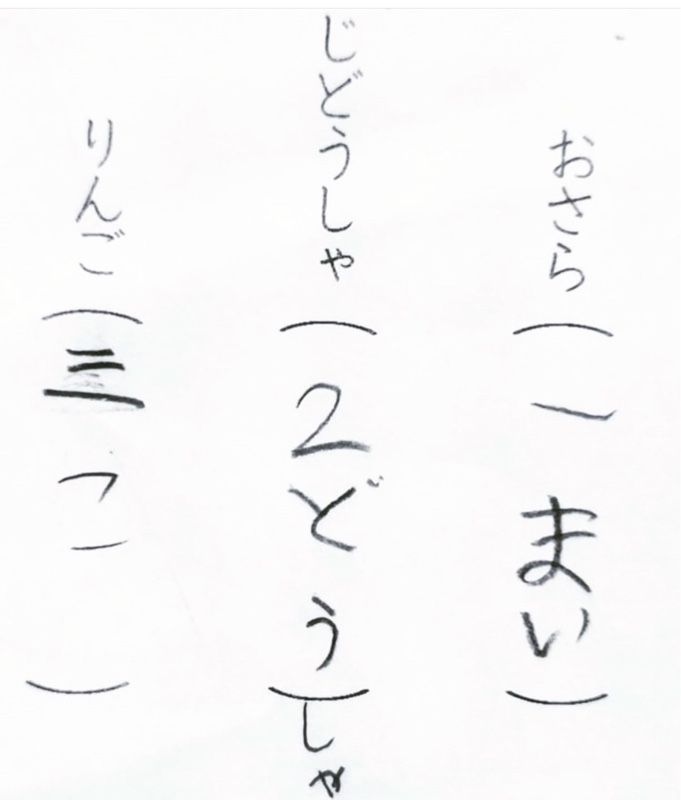 おさら(一まい)
じどうしゃ(2どう)しゃ
りんご(三こ)